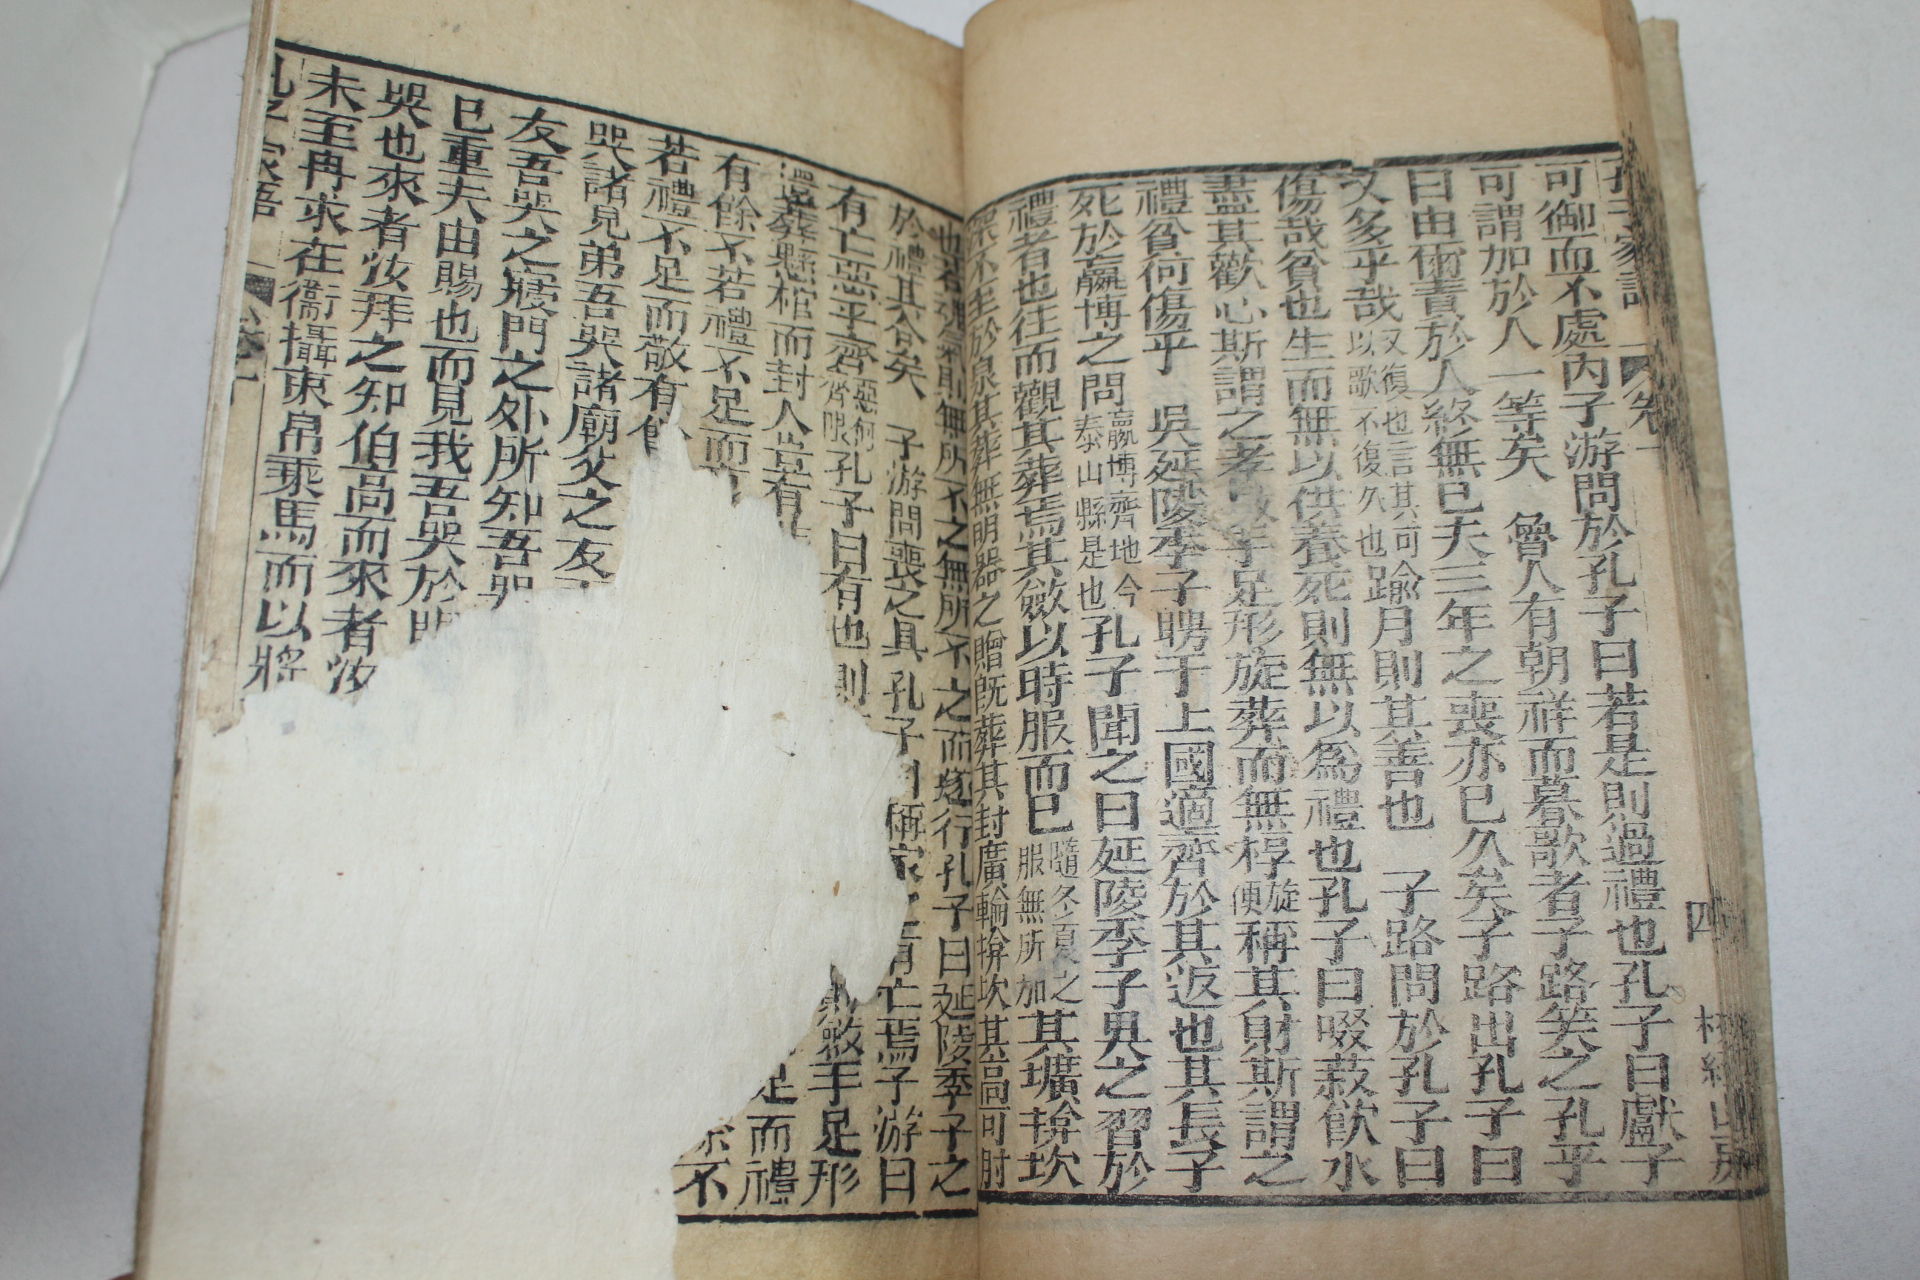 可御而不處內子游問於孔子曰若是則過禮也孔子曰獻子
可謂加於人一等矣 魯人有朝祥而暮歌者子路笑之孔子
曰由爾責於人終無已夫三年之喪亦已久矣子路出孔子曰
又多乎哉又復也言其可以歌不復久也踰月則其善也 子路問於孔子曰
傷哉貧也生而無以供養死則無以為禮也孔子曰啜菽飮水
盡其歡心斯謂之孝 手足形旋葬而無椁旋便稱其財斯謂之
禮貧何傷乎 吳延陵季子聘于上國適齊於其返也其長子
死於嬴博之間嬴博齊地今泰山縣是也孔子聞之曰延陵季子男之習於
禮者也往而觀其葬焉其斂以時服而已隨冬夏之服無所加其壙揜坎
深不至於泉其葬無明器之贈旣葬其封廣輪揜坎其高可肘
無所不之無所不之而遂行孔子曰延陵季子之
於禮其合矣 子游問喪之具孔子曰稱家之有亡焉子游曰
有亡惡乎齊惡何齊限孔子曰有也則 斂手足形
還葬懸棺而封人豈有 足而禮
有餘不若禮不足而 餘不
若禮不足而敬有餘
哭諸兄弟吾哭諸廟父之友
友吾哭之寢門之外所知吾哭
已重夫由賜也而見我吾哭於
哭也來者汝拜之知伯高而來者汝
未至冉求在衞攝束帛乘馬而以將
孔子家語 卷十
四